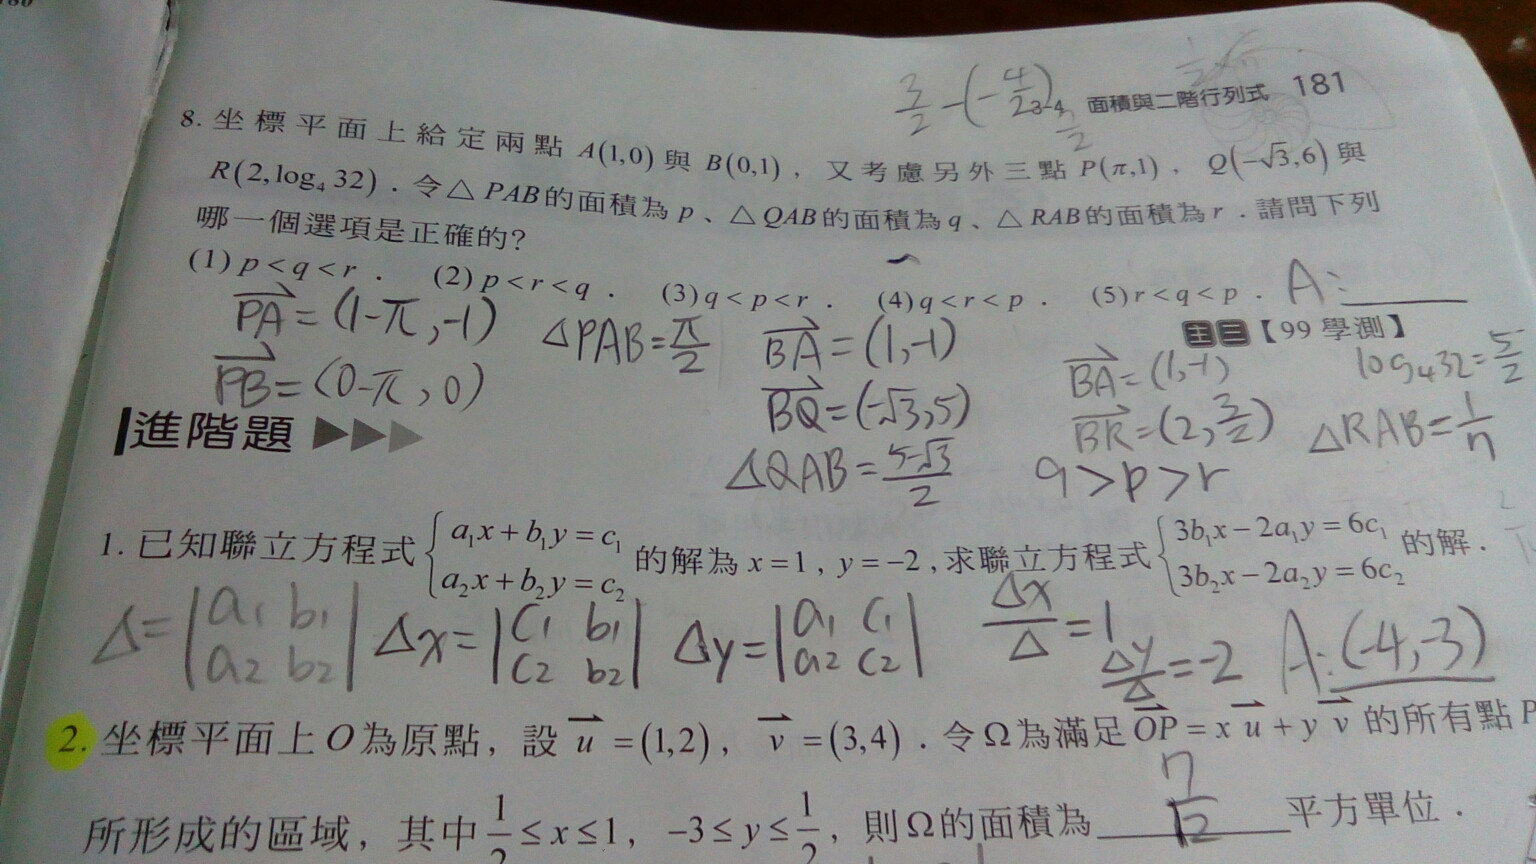 3/2-(-4/2)
3-4 面積與二階行列式 181
8. 坐標平面上給定兩點 A(1,0) 與 B(0,1), 又考慮另外三點 P(π,1), Q(-√3,6) 與
R(2,log₄32). 令△PAB的面積為p、△QAB的面積為q、△RAB的面積為r. 請問下列
哪一個選項是正確的?
(1) p<q<r. (2) p<r<q. (3) q<p<r. (4) q<r<p. (5) r<q<p. A:
主 三 【99 學測】
PA=(1-π,-1) △PAB=π/2 BA=(1,-1) BA=(1,-1) log₄32=5/2
PB=(0-π,0) BQ=(-√3,5) BR=(2,3/2) △RAB=
進階題
△QAB=5-√3/2 q>p>r
1. 已知聯立方程式 { a₁x+b₁y=c₁ a₂x+b₂y=c₂ 的解為 x=1, y=-2, 求聯立方程式 { 3b₁x-2a₁y=6c₁ 3b₂x-2a₂y=6c₂ 的解.
Δ=|a₁ b₁ a₂ b₂| Δx=|c₁ b₁ c₂ b₂| Δy=|a₁ c₁ a₂ c₂| Δx/Δ=1 Δy/Δ=-2 A:(-4,-3)
2. 坐標平面上O為原點, 設 u=(1,2), v=(3,4). 令Ω為滿足OP=xu+yv的所有點P
所形成的區域, 其中 1/2≤x≤1, -3≤y≤1/2, 則Ω的面積為 平方單位.